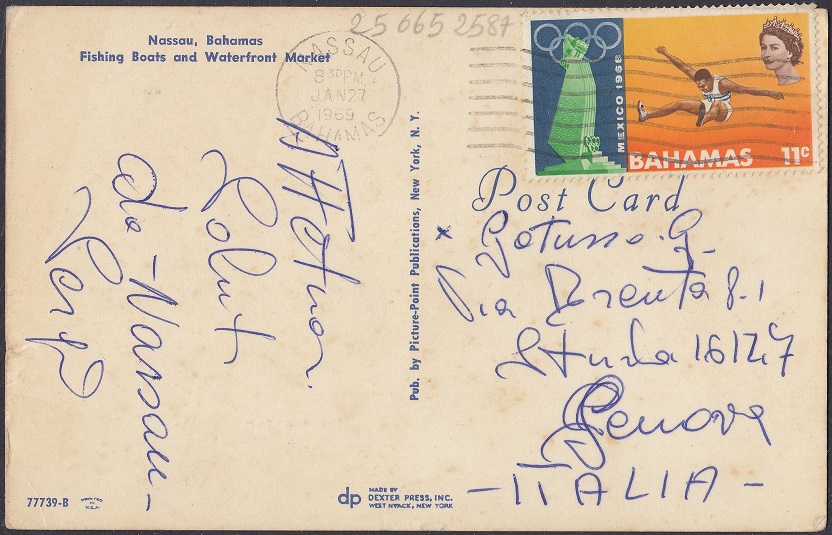 25 065 2587
Nassau, Bahamas
Fishing Boats and Waterfront Market
NASSAU,
8 30 PM
JAN 27
1969
BAHAMAS
MEXICO 1968
BAHAMAS 11c
Post Card
Via Brenta
16147
Genova
- ITALIA -
da - Nassau -
Pub. by Picture-Point Publications, New York, N. Y.
77739-B
PRINTED IN U.S.A.
dp
MADE BY
DEXTER PRESS, INC.
WEST NYACK, NEW YORK